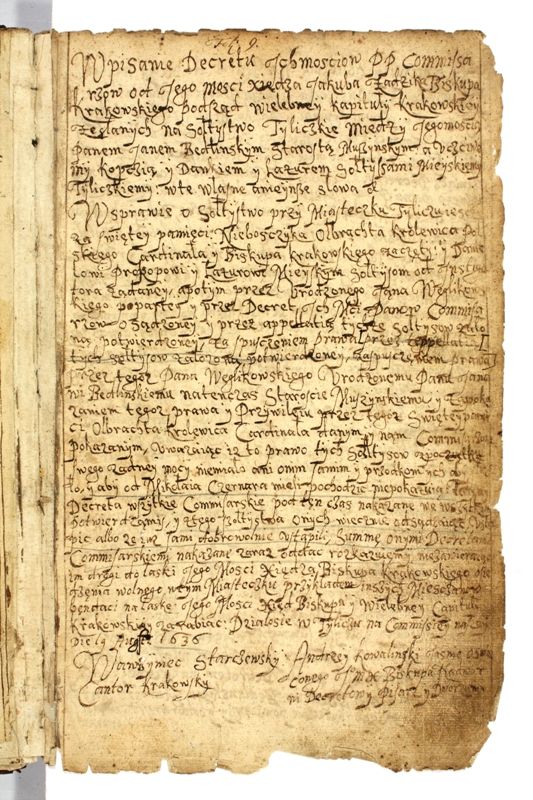 Wpisanie Decretu Ichmosciow PP Commissa
rzow od Jego Mosci Xiędza Jakuba Zadzika Biskupa
Krakowskiego y od Wielebney Kapituły Krakowskiey
Zesłanych na Sołtystwo Tyliczkie Między Jegomoscią
Panem Janem Bedlinskym Starostą Muszynskym a Uczciwe
my Kopczią y Dankiem y Lazurem Sołtysami Mieyskiemy
Tyliczkiemy wte własne a nie insze slowa
Wsprawie o Sołtystwo przy Miasteczku Tyliczu ieszcze
za swiętey pamięci Nieboszczyka Olbrachta Krolewica Pol
skiego Cardinała y Biskupa krakowskiego zaczętey Danie
lowi Prokopowi y Łazurowi Mieyskym Sołtysom od
tora zadaney, a potym przez Urodzonego Jana Węglikow
skiego popartey y przez Decret Ich Mci Panow Commissa
rzow osądzoney y przez appellatią tychze Sołtysow założo
ną potwierdzoney, za spuszczeniem Prawa przez appellatią
tych sołtysow założoną potwierdzoney, za spuszczeniem prawa
przez tegoz Pana Węglikowskiego Urodzonemu Panu Jano
wi Bedlinskiemu natenczas Staroscie Muszynskiemu y za poka
zaniem tegoz prawa y Przywileju przez tegoz Swiętey pamię
ci Olbrachta Krolewica Cardinała danym y nam Commissarzom
pokazanym, Uwazaiąc iz to prawo tych Sołtysow z początku
swego zadney mocy niemiało ani onim samim y przodkom ych
to, iaby od Mikołaia Czernara mieli pochodzic niepokazuią
Decreta wszytkie Commisarskie pod ten czas nakazane we wszytkim
potwierdzamy, y z tego Sołtystwa onych wiecznie odsądzaiąc
pic albo ze iuz sami dobrowolnie ustąpili, Summę onymi Decretami
Commisarskiemi nakazane zaraz oddac rozkazuiemy niezawieraiąc
im drogi do łaski Jego Mosci Xiędza Biskupa Krakowskiego
dzenia wolnego wtym Miasteczku przykładem inszych Mieszczan
na łaskę Jego Mosci Xiędza Biskupa y Wielebney Capituły
Krakowskiey zarabiac. Działosie w Tyliczu na Commissiey
Die 19 1636
Wawrzyniec Starczewsky
Cantor Krakowsky
Andrzey Kowalinski Jasnie Oswie
conego Biskupa
ni Decretowy Pisarz y Dworzanin